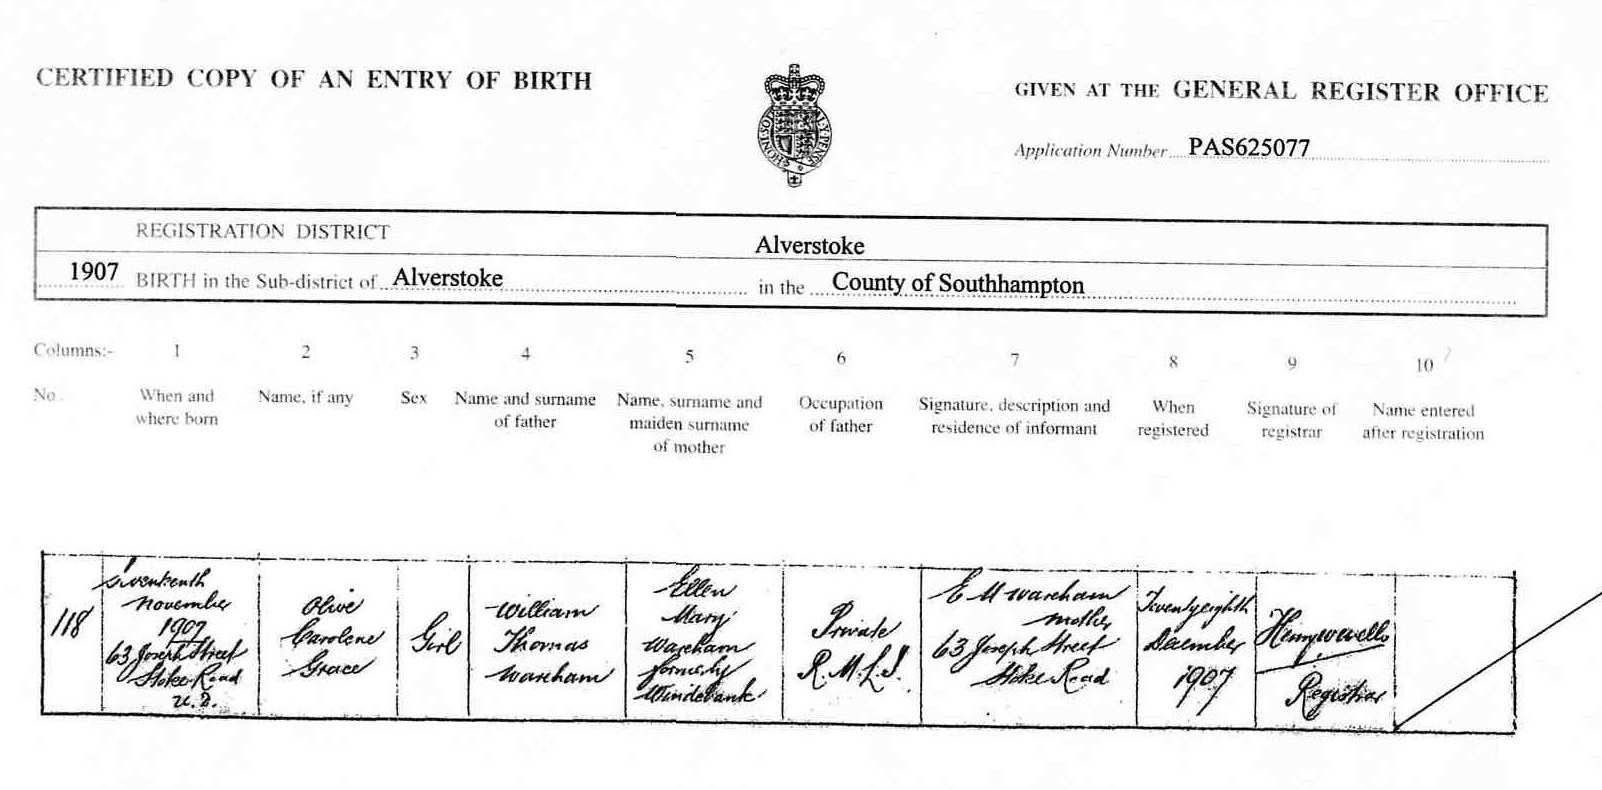 CERTIFIED COPY OF AN ENTRY OF BIRTH
GIVEN AT THE GENERAL REGISTER OFFICE
Application Number PAS625077
REGISTRATION DISTRICT Alverstoke
1907 BIRTH in the Sub-district of Alverstoke in the County of Southhampton
Columns:- 1 2 3 4 5 6 7 8 9 10
No. When and where born
Name, if any
Sex
Name and surname of father
Name, surname and maiden surname of mother
Occupation of father
Signature, description and residence of informant
When registered
Signature of registrar
Name entered after registration
118
Seventeenth
November
1907
63 Joseph Street
Stoke Road
U.D.
Olive
Carolene
Grace
Girl
William
Thomas
Wareham
Ellen
Mary
Wareham
formerly
Windebank
Private
R.M.L.I.
E M Wareham
mother
63 Joseph Street
Stoke Road
Twenty eighth
December
1907
Registrar